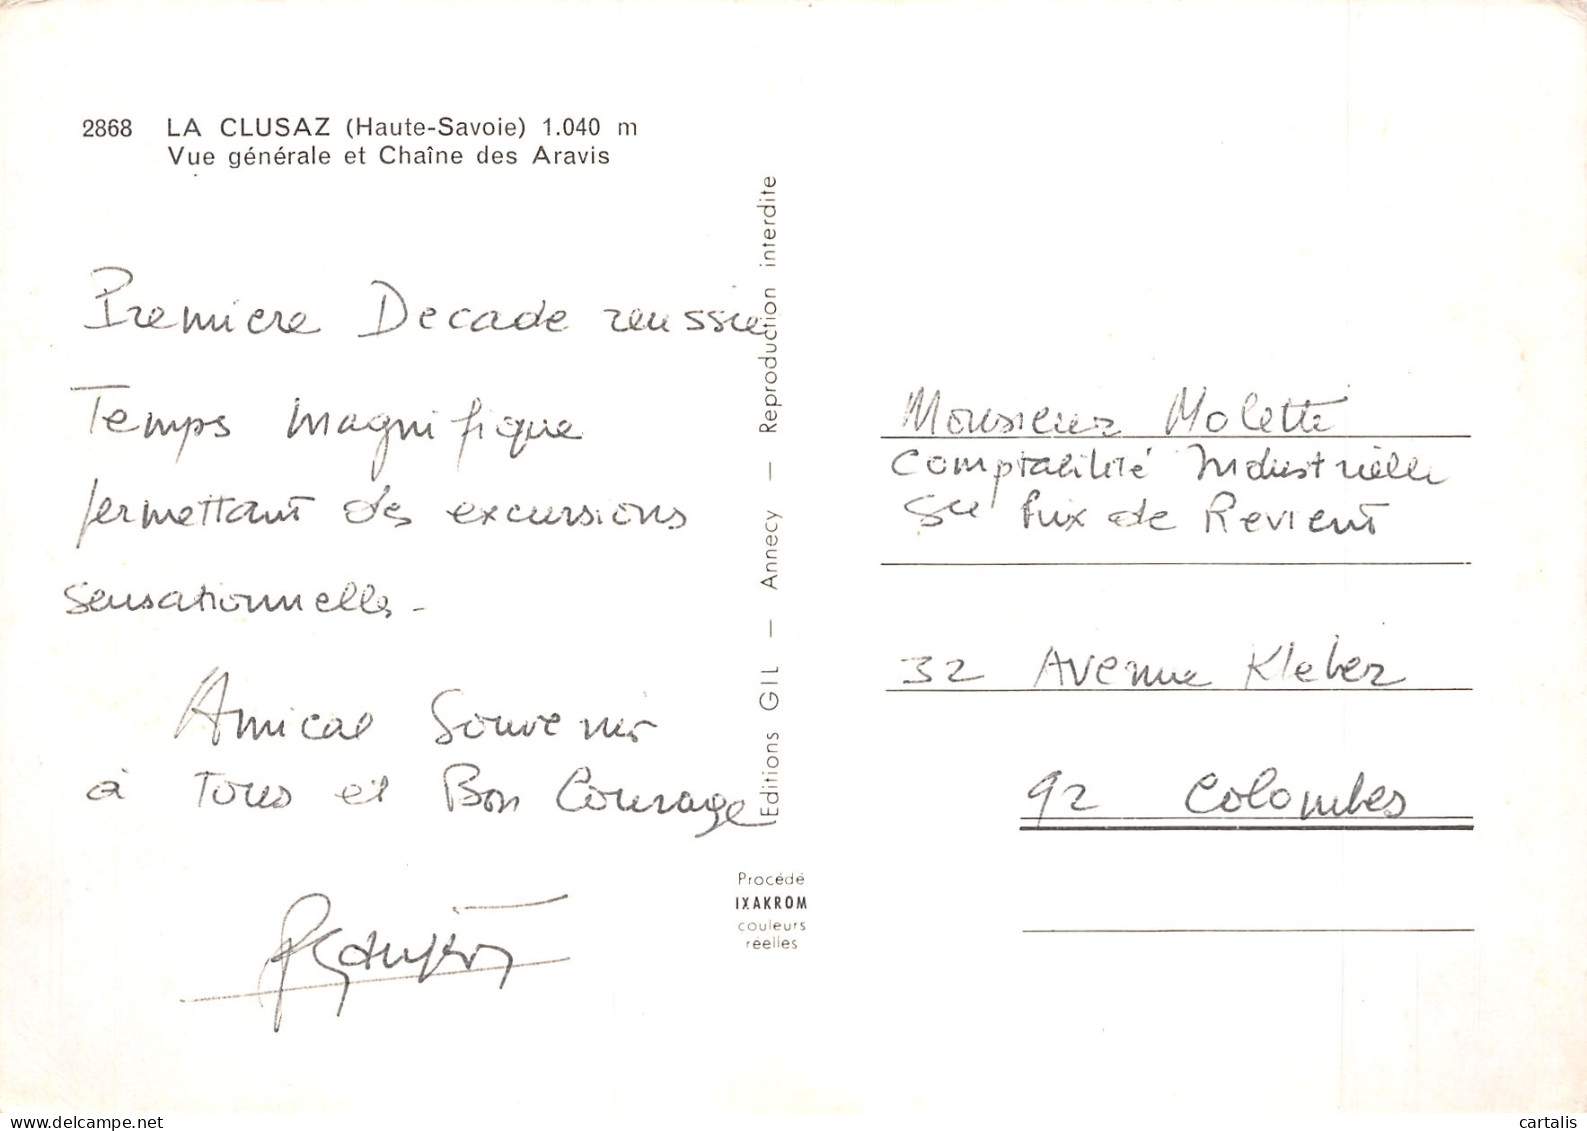 2868 LA CLUSAZ (Haute-Savoie) 1.040 m
Vue générale et Chaîne des Aravis
Premiere Decade reussie
Temps magnifique
permettant des excursions
sensationnelles -
Amical Souvenir
à Tous et Bon Courage
Editions GIL — Annecy — Reproduction interdite
Procédé
IXAKROM
couleurs
réelles
Monsieur Molette
Comptabilité Industrielle
Sce Prix de Revient
32 Avenue Kleber
92 Colombes
cartalis